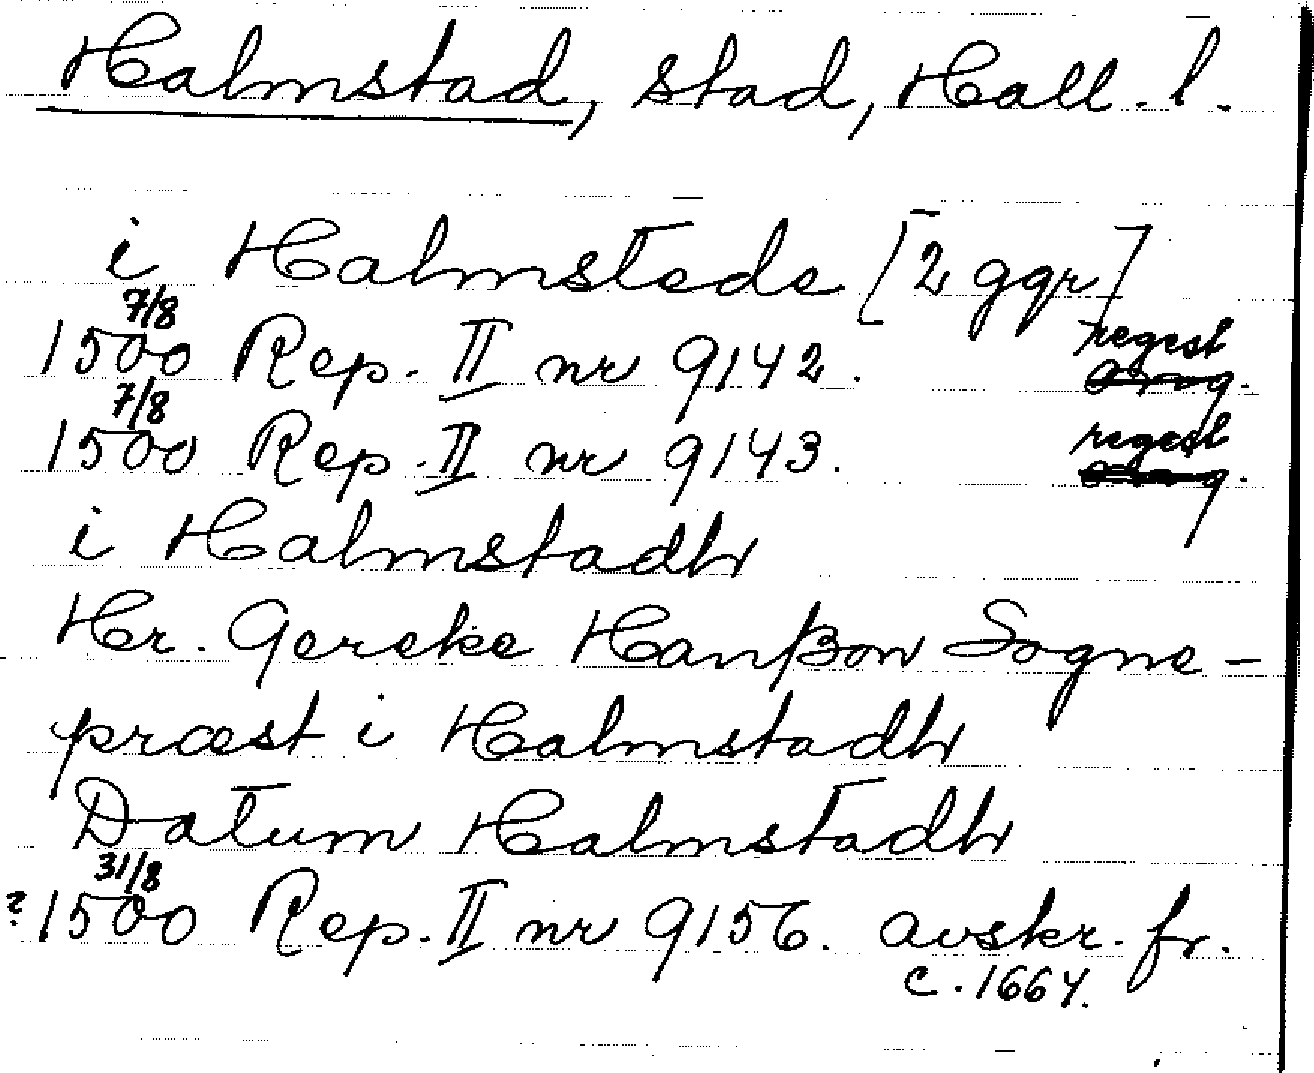 Halmstad, stad, Hall. l.
i Halmstede [2 ggr]
7/8
1500 Rep. II nr 9142. regest
7/8
1500 Rep. II nr 9143. regest
i Halmstadh
Hr. Gereke Hanßon Sogne-
præst i Halmstadh
Datum Halmstadh
31/8
?1500 Rep. II nr 9156. avskr. fr.
c. 1664.